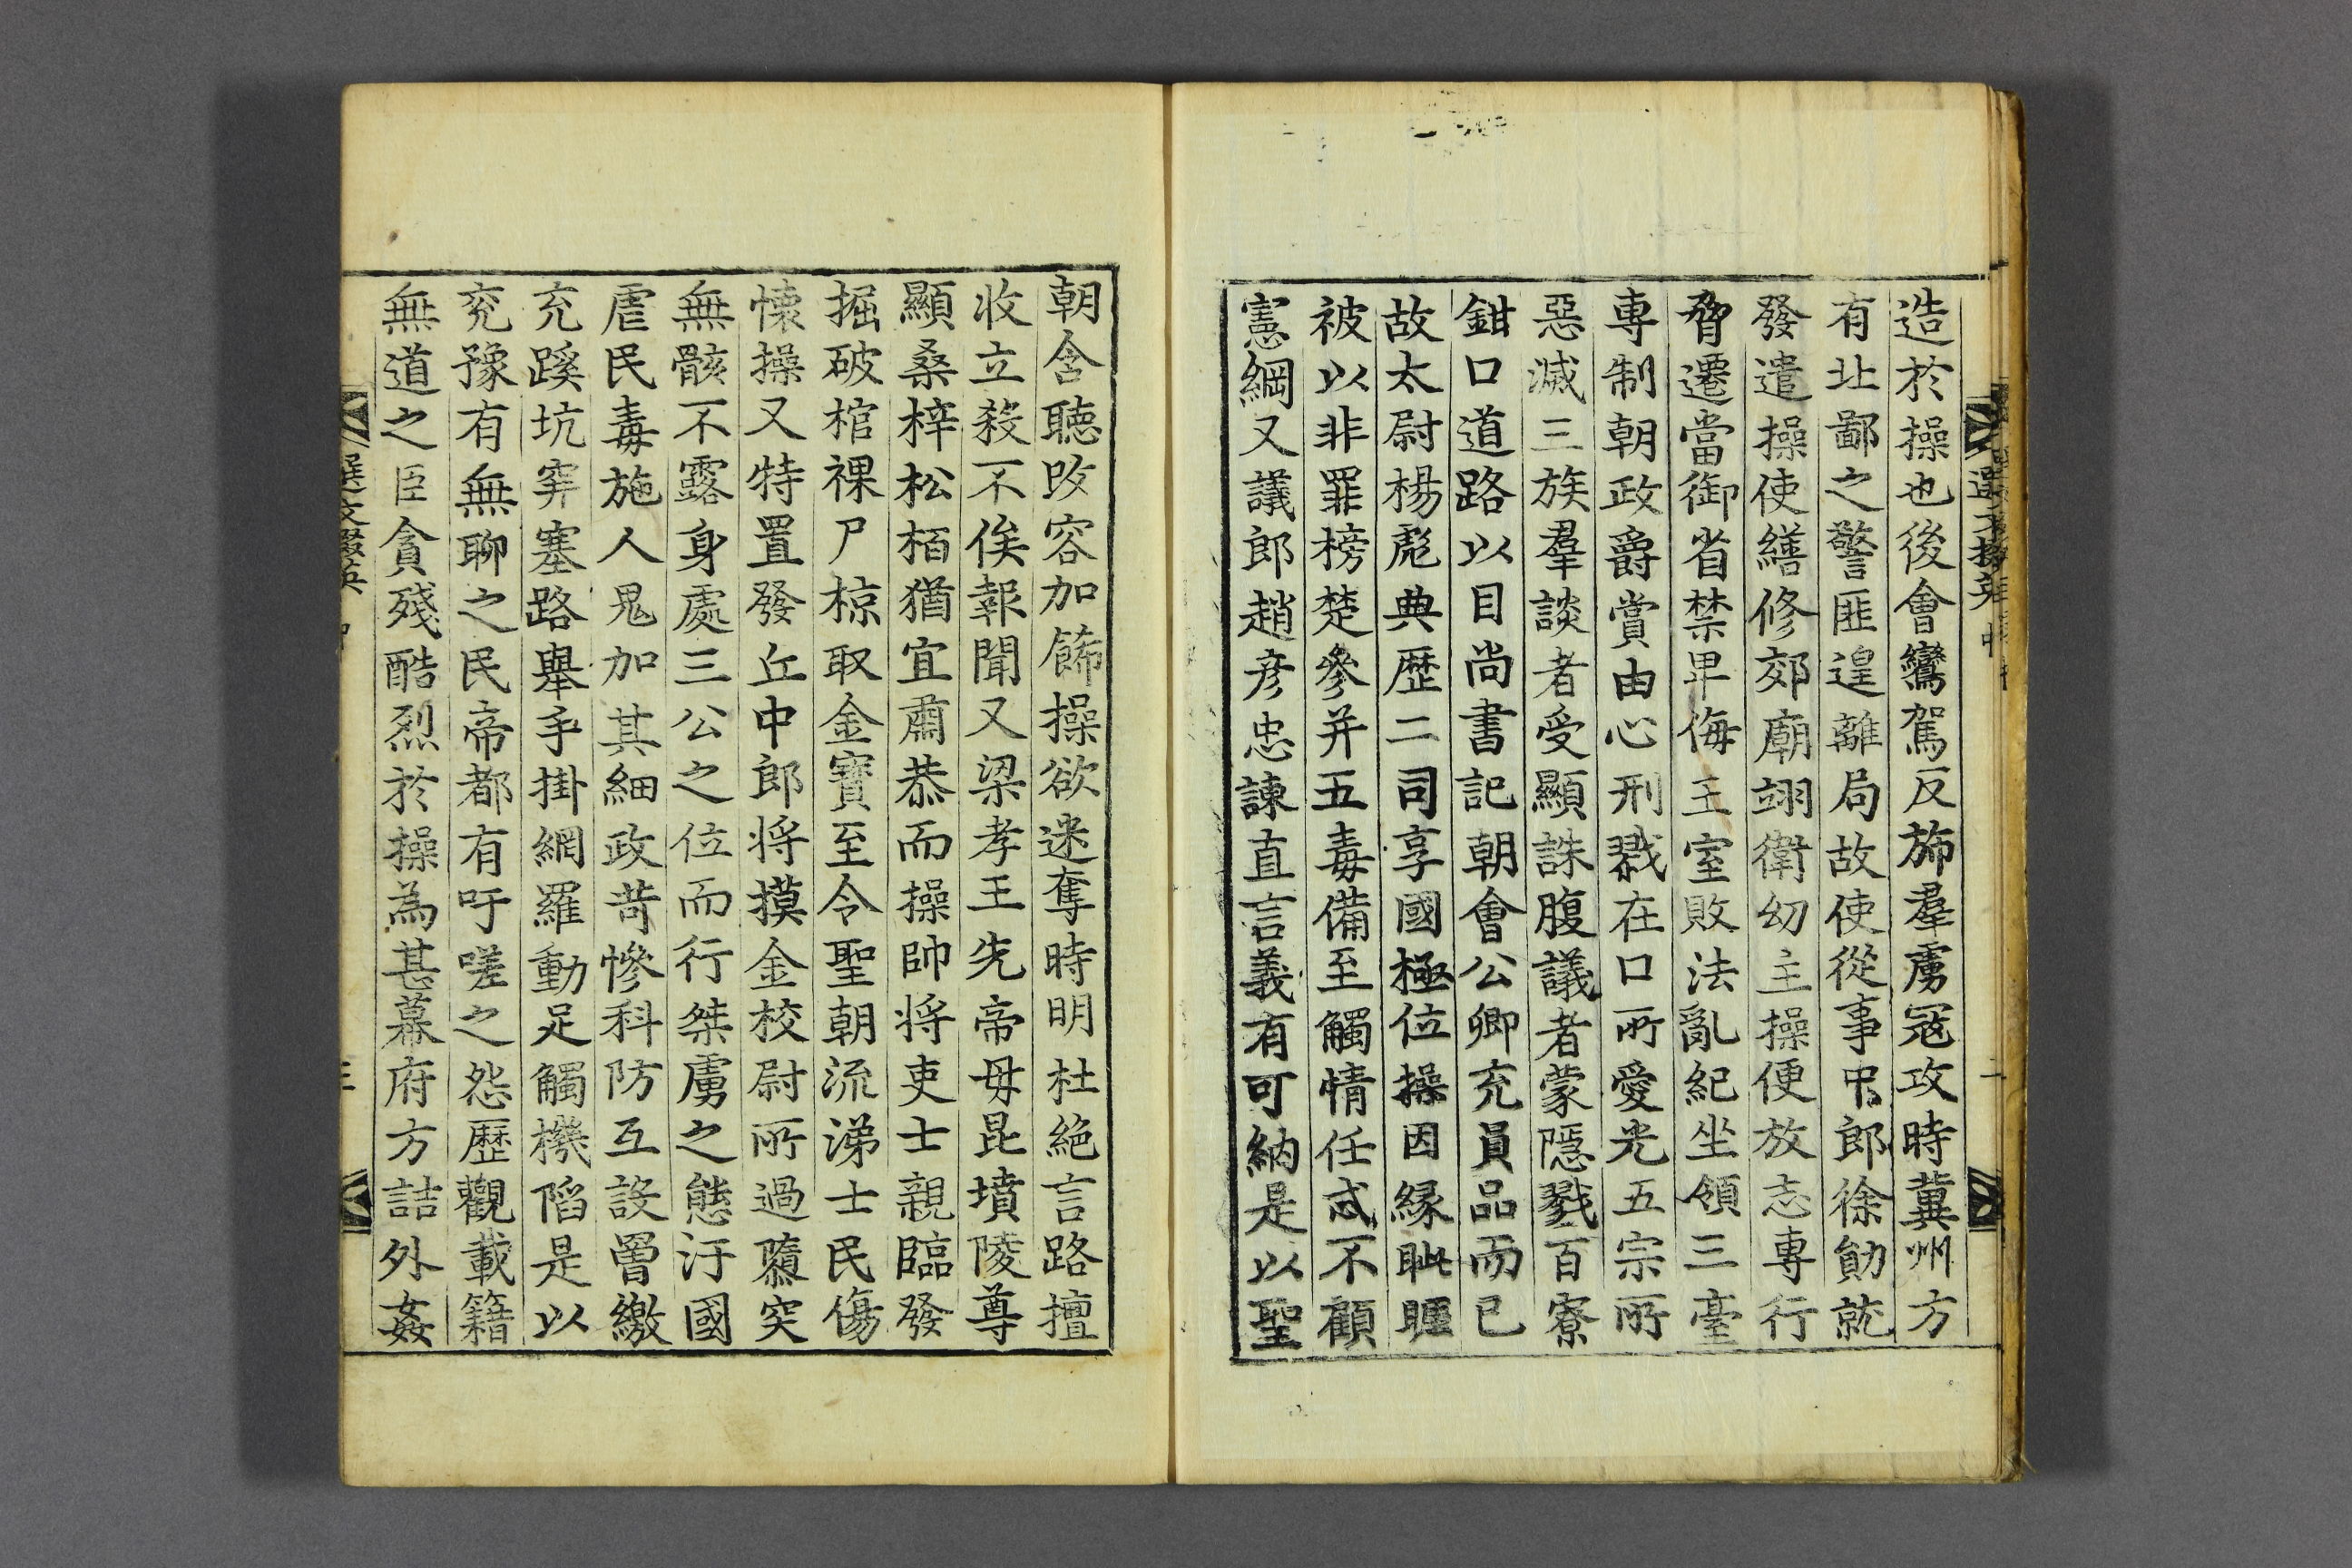 造於操也後會鸞駕反旆羣虜冦攻時兾州方
有北鄙之警匪遑離局故使從事中郎徐勛就
發遣操使繕修郊廟翊衛幼主操便放志專行
脅遷當御省禁卑侮王室敗法亂紀坐領三臺
專制朝政爵賞由心刑戮在口所愛光五宗所
惡滅三族羣談者受顯誅腹議者蒙隱戮百寮
鉗口道路以目尚書記朝會公卿充員品而已
故太尉楊彪典歷二司享國極位操因緣眦睚
被以非罪榜楚參并五毒備至觸情任忒不顧
憲綱又議郎趙彦忠諫直言義有可納是以聖
朝含聽改容加飾操欲迷奪時明杜絕言路擅
收立殺不俟報聞又梁孝王先帝母昆墳陵尊
顯桑梓松栢猶宜肅恭而操帥將吏士親臨發
掘破棺裸尸掠取金寶至令聖朝流涕士民傷
懐操又特置發丘中郎將摸金校尉所過隳突
無骸不露身處三公之位而行桀虜之態汙國
虐民毒施人鬼加其細政苛慘科防互設罾繳
充蹊坑穽塞路舉手掛網羅動足觸機陷是以
兖豫有無聊之民帝都有吁嗟之怨歷觀載籍
無道之臣貪殘酷烈於操為甚幕府方詰外姦
選文掇英 中